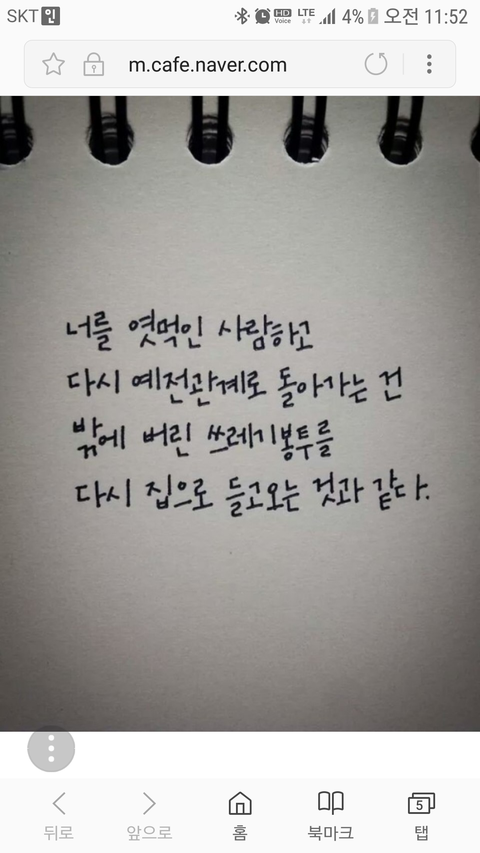 SKT 인 HD Voice LTE 4% 오전 11:52
m.cafe.naver.com
너를 엿먹인 사람하고
다시 예전관계로 돌아가는 건
밖에 버린 쓰레기봉투를
다시 집으로 들고오는 것과 같다.
5
뒤로 앞으로 홈 북마크 탭